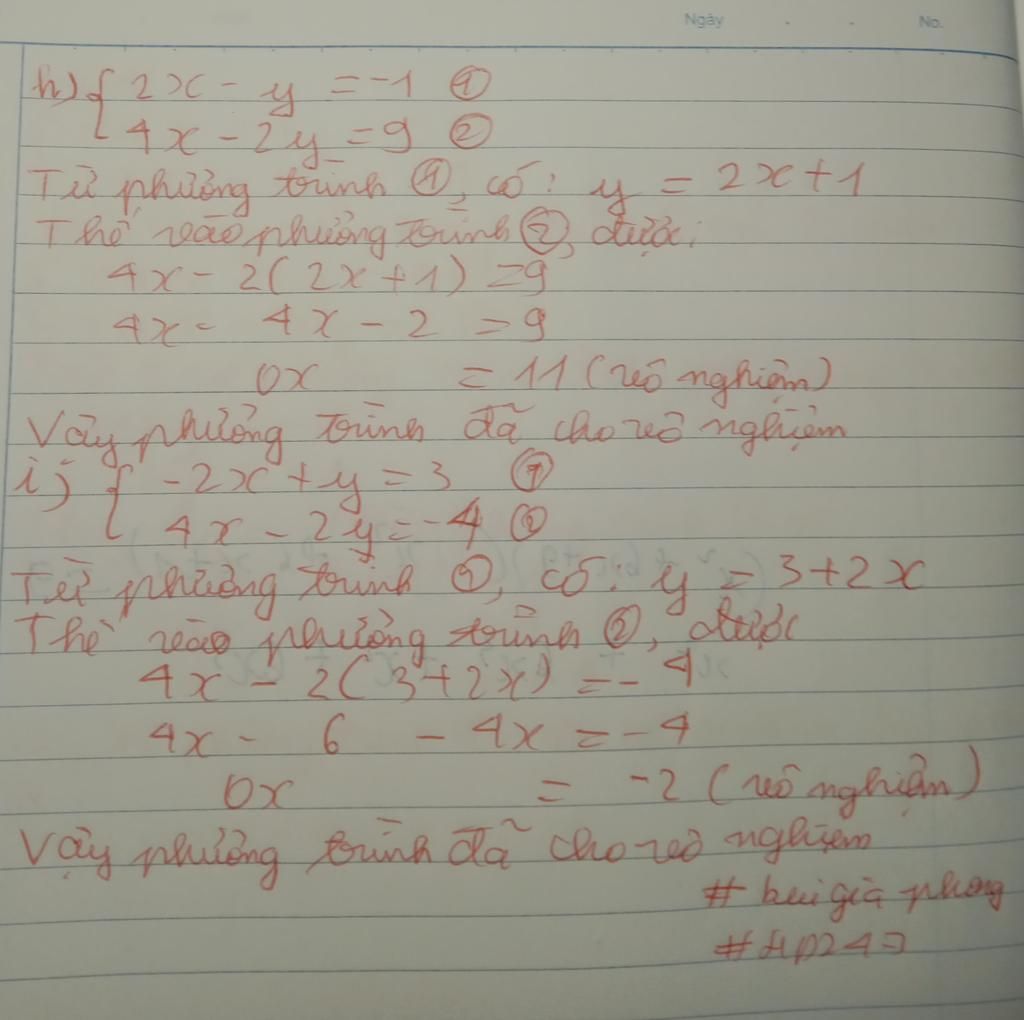 Ngày No.
h) { 2x - y = -1 ①
4x - 2y = 9 ②
Từ phương trình ①, có: y = 2x + 1
Thế vào phương trình ②, được:
4x - 2(2x + 1) = 9
4x - 4x - 2 = 9
0x = 11 (vô nghiệm)
Vậy phương trình đã cho vô nghiệm
i) { -2x + y = 3 ①
4x - 2y = -4 ②
Từ phương trình ①, có: y = 3 + 2x
Thế vào phương trình ②, được
4x - 2(3 + 2x) = -4
4x - 6 - 4x = -4
0x = -2 (vô nghiệm)
Vậy phương trình đã cho vô nghiệm
# bui gia phong